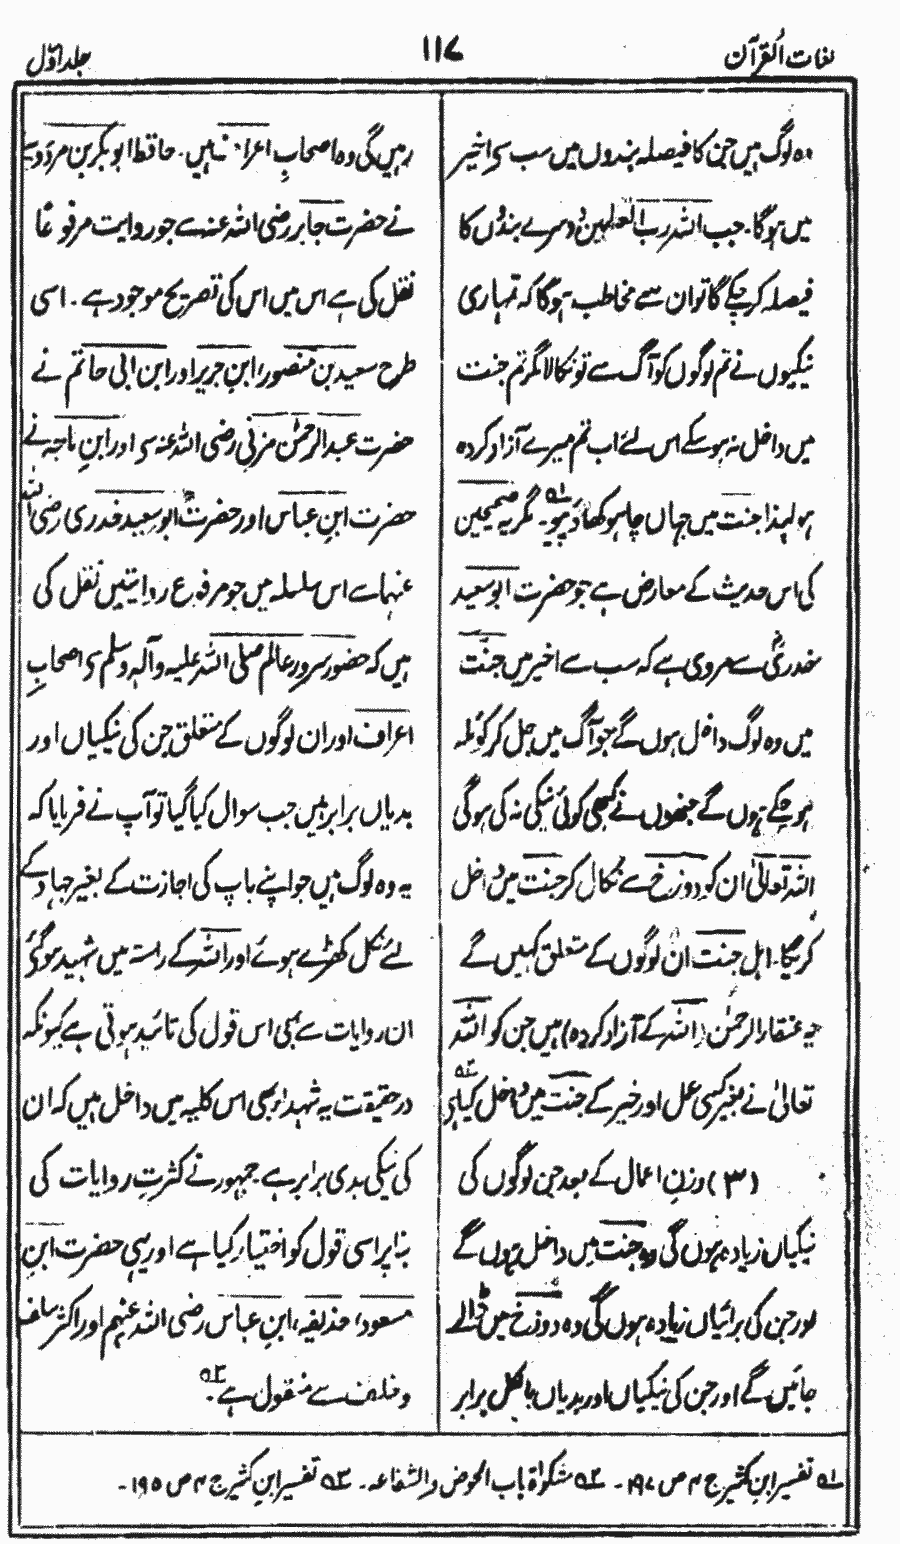 لغات القرآن
۱۱۷
جلد اوّل
وہ لوگ ہیں جن کا فیصلہ بندوں میں سب سے اخیر
میں ہوگا۔ جب اللہ رب العٰلمین دوسرے بندوں کا
فیصلہ کر چکے گا تو ان سے مخاطب ہوگا کہ تمہاری
نیکیوں نے تم لوگوں کو آگ سے تو نکالا مگر تم جنت
میں داخل نہ ہو سکے اس لئے اب تم میرے آزاد کردہ
ہو لہذا جنت میں جہاں چاہو کھاؤ پیو۔ ۱ہ مگر یہ صحیحین
کی اس حدیث کے معارض ہے جو حضرت ابو سعید
خدریؓ سے مروی ہے کہ سب سے اخیر میں جنت
میں وہ لوگ داخل ہوں گے جو آگ میں جل کر کوئلہ
ہو چکے ہوں گے جنھوں نے کبھی کوئی نیکی نہ کی ہوگی
اللہ تعالیٰ ان کو دوزخ سے نکال کر جنت میں داخل
کریگا۔ اہل جنت ان لوگوں کے متعلق کہیں گے
یہ عتقاء الرحمٰن (اللہ کے آزاد کردہ) ہیں جن کو اللہ
تعالیٰ نے بغیر کسی عمل اور خیر کے جنت میں داخل کیا ہے ۲ہ
(۳) وزنِ اعمال کے بعد جن لوگوں کی
نیکیاں زیادہ ہوں گی وہ جنت میں داخل ہوں گے
اور جن کی برائیاں زیادہ ہوں گی وہ دوزخ میں ڈالے
جائیں گے اور جن کی نیکیاں اور بدیاں بالکل برابر
رہیں گی وہ اصحابِ اعراف ہیں۔ حافظ ابو بکر بن مردویہ
نے حضرت جابر رضی اللہ عنہ سے جو روایت مرفوعًا
نقل کی ہے اس میں اس کی تصریح موجود ہے۔ اسی
طرح سعید بن منصور، ابنِ جریر اور ابن ابی حاتم نے
حضرت عبد الرحمٰن مزنی رضی اللہ عنہ سے اور ابنِ ماجہ نے
حضرت ابنِ عباس اور حضرت ابو سعید خدری رضی اللہ
عنہما سے اس سلسلہ میں جو مرفوع روایتیں نقل کی
ہیں کہ حضور سرورِ عالم صلی اللہ علیہ وآلہٖ وسلم سے اصحابِ
اعراف اور ان لوگوں کے متعلق جن کی نیکیاں اور
بدیاں برابر ہیں جب سوال کیا گیا تو آپ نے فرمایا کہ
یہ وہ لوگ ہیں جو اپنے باپ کی اجازت کے بغیر جہاد کے
لئے نکل کھڑے ہوئے اور اللہ کے راستہ میں شہید ہو گئے
ان روایات سے بھی اس قول کی تائید ہوتی ہے کیونکہ
درحقیقت یہ شہداء بھی اس کلیہ میں داخل ہیں کہ ان
کی نیکی بدی برابر ہے۔ جمہور نے کثرتِ روایات کی
بنا پر اسی قول کو اختیار کیا ہے اور یہی حضرت ابنِ
مسعود، حذیفہ، ابنِ عباس رضی اللہ عنہم اور اکثر سلف
و خلف سے منقول ہے۔ ۳ہ
۱ہ تفسیر ابنِ کثیر ج ۴ ص ۱۹۷۔ ۲ہ مشکوٰۃ باب الحوض والشفاعہ۔ ۳ہ تفسیر ابنِ کثیر ج ۴ ص ۱۹۵۔